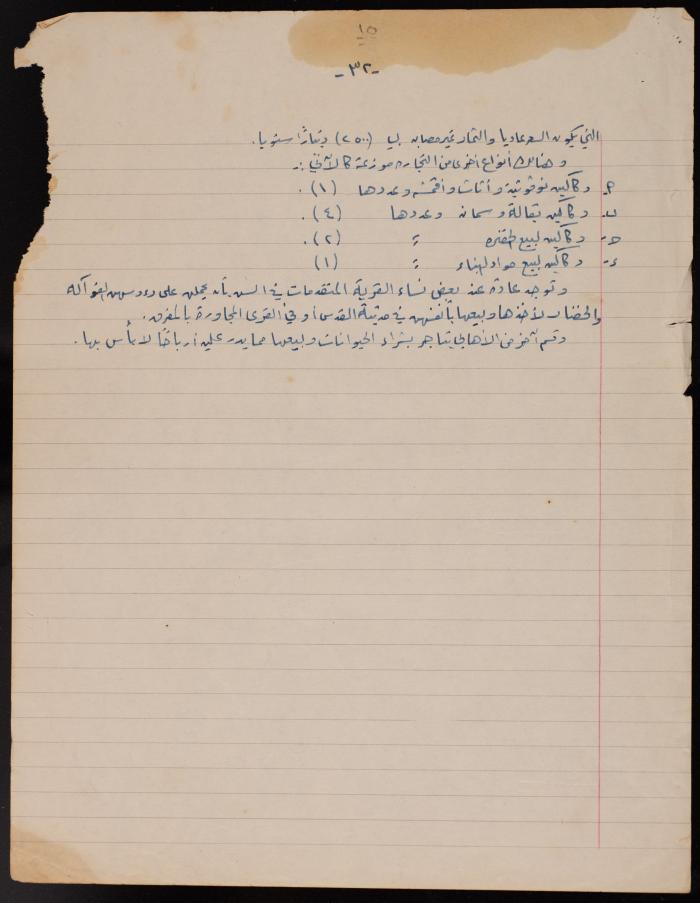 ١٥
-٣٢-
التي يكون السعر عاديا والثمار غير مصاب بـ (٢٥٠٠) ديناراً سنويا.
وهنالك أنواع أخرى من التجارة موزعة كالآتي :-
٢- دكاكين نوفوتية وأثاث وأقمشة وعددها (١).
ب- دكاكين بقالة وسمانة وعددها (٤).
ج- دكاكين لبيع الخضرة " (٢).
د- دكاكين لبيع مواد البناء " (١)
وتوجد عادة عند بعض نساء القرية المتقدمات في السن بأن يحملن على رءوسهن الفواكه
والخضار لأخذها وبيعها بأنفسهن في مدينة القدس أو في القرى المجاورة بالمفرق.
وقسم آخر من الأهالي يتاجر بشراء الحيوانات وبيعها مما يدر عليهن أرباحًا لا بأس بها.